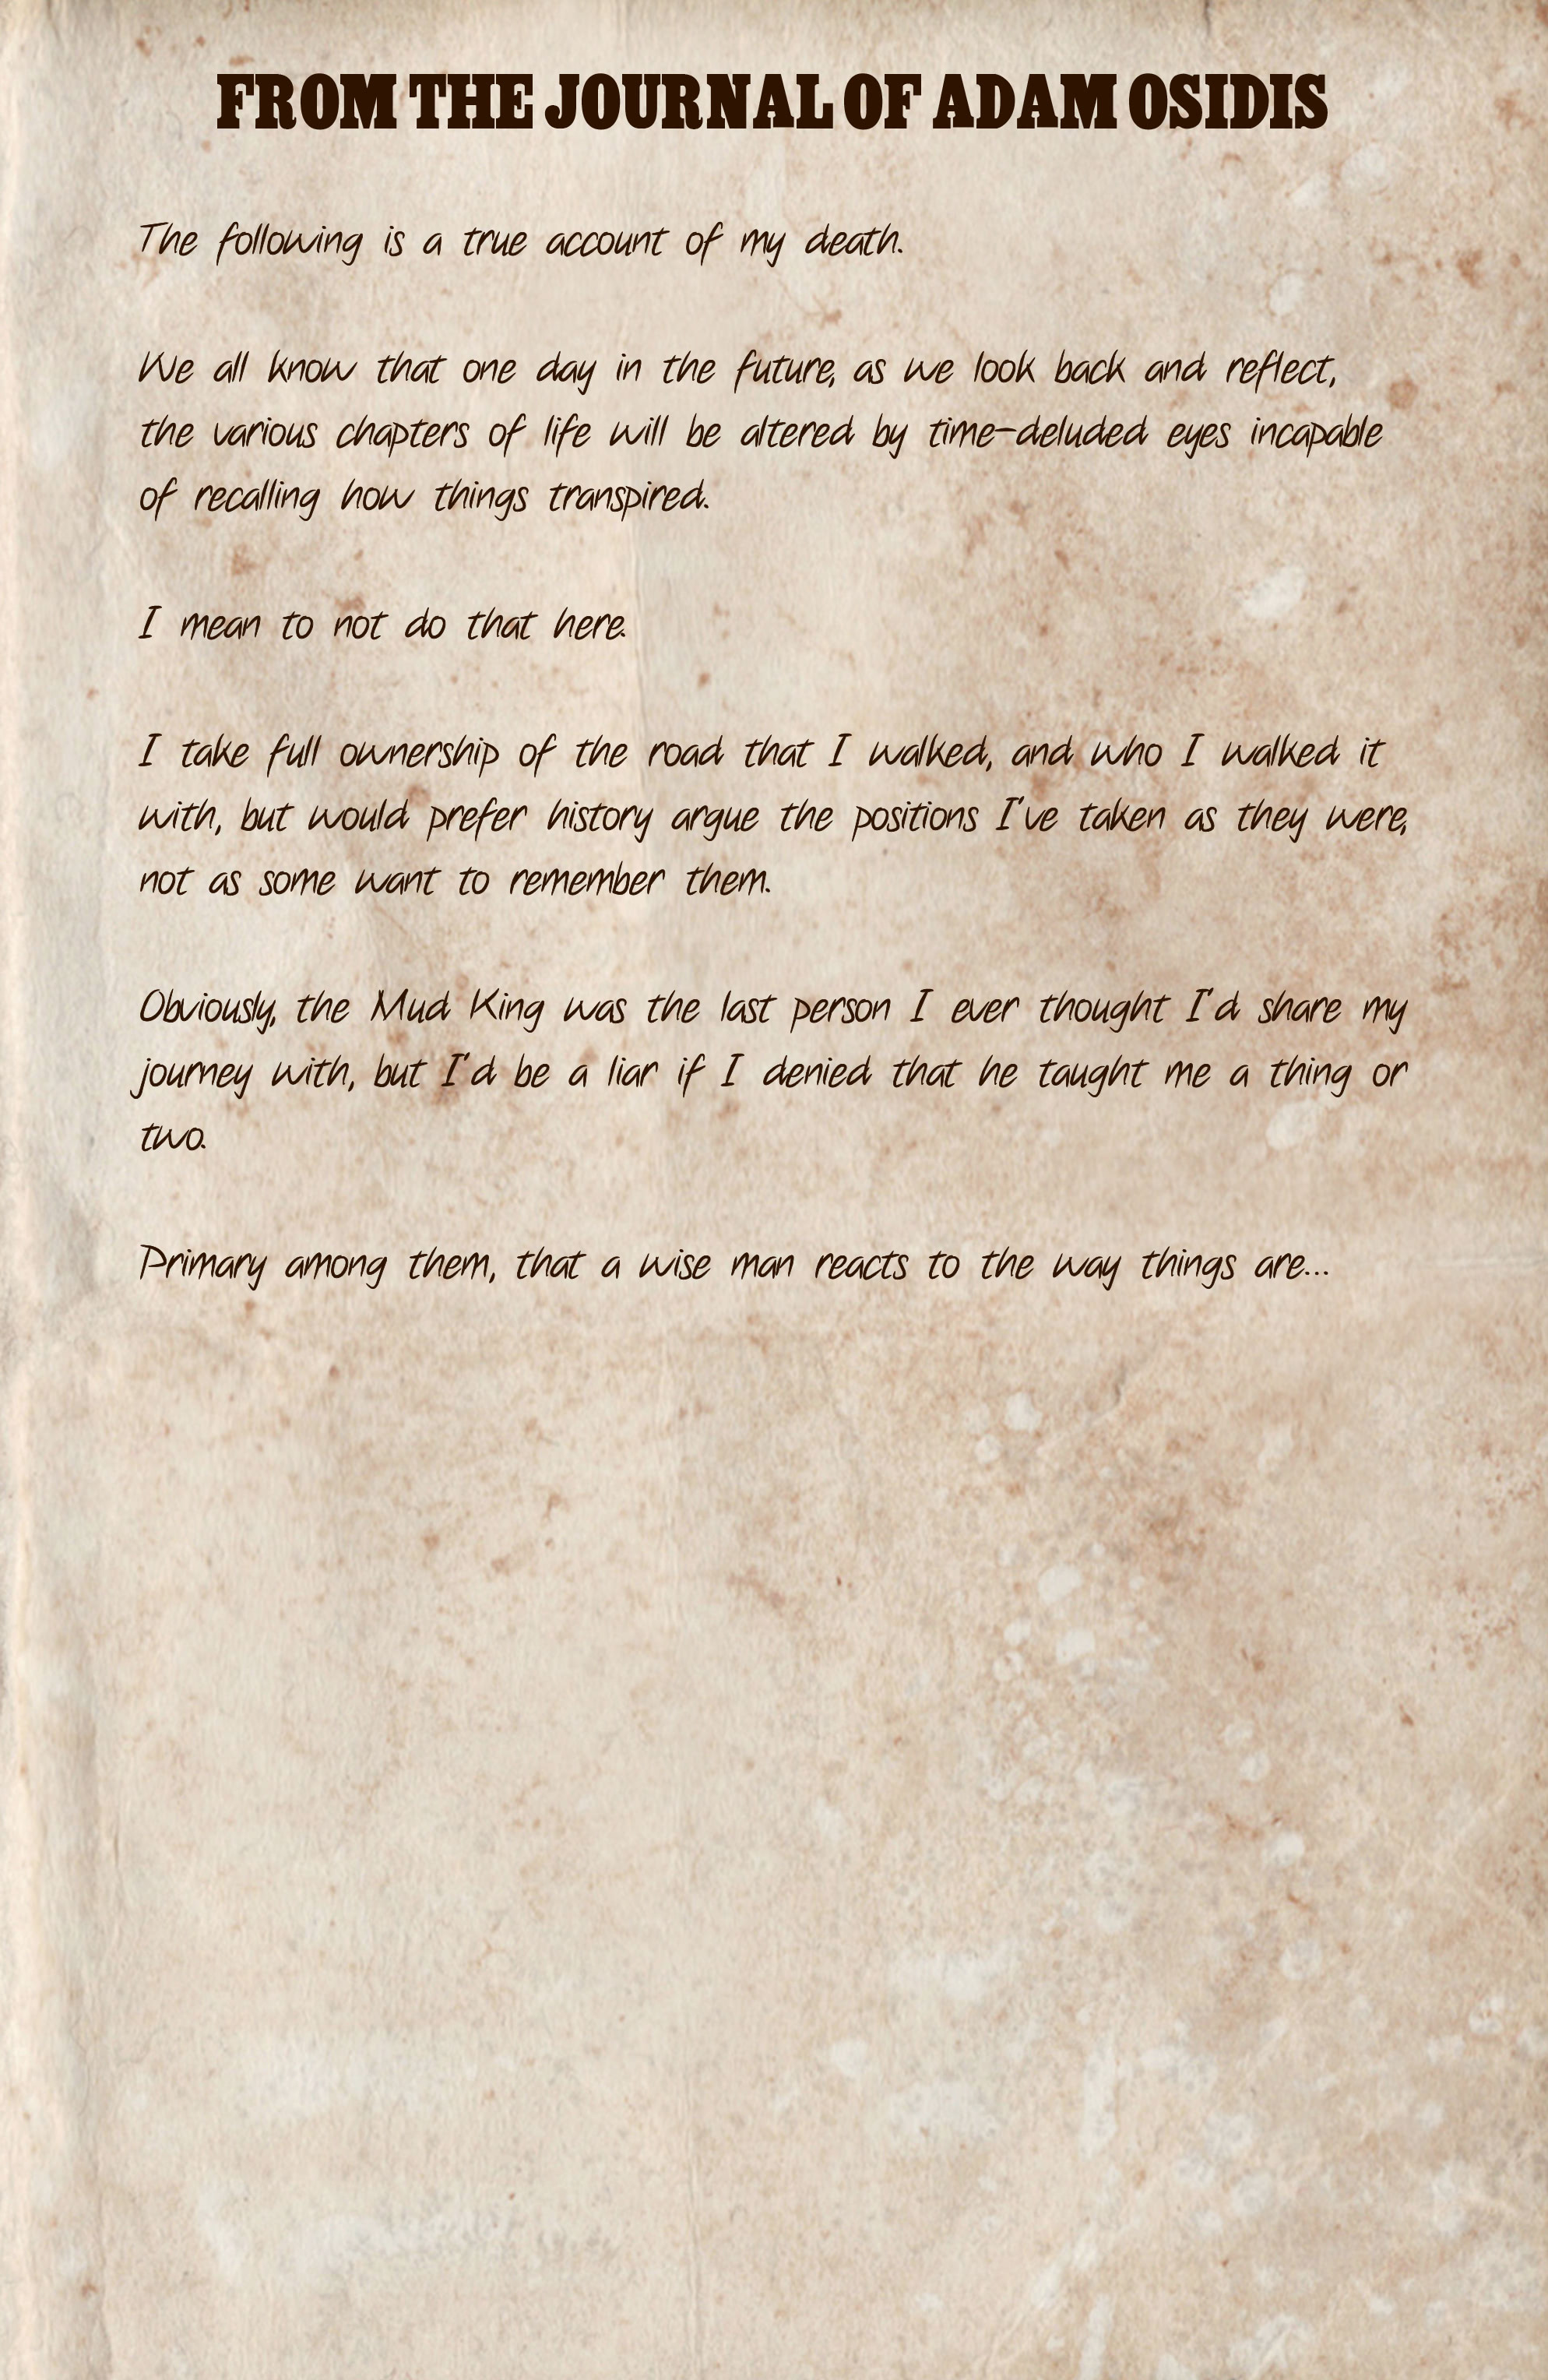 FROM THE JOURNAL OF ADAM OSIDIS
The following is a true account of my death.
We all know that one day in the future, as we look back and reflect,
the various chapters of life will be altered by time-deluded eyes incapable
of recalling how things transpired.
I mean to not do that here.
I take full ownership of the road that I walked, and who I walked it
with, but would prefer history argue the positions I've taken as they were,
not as some want to remember them.
Obviously, the Mud King was the last person I ever thought I'd share my
journey with, but I'd be a liar if I denied that he taught me a thing or
two.
Primary among them, that a wise man reacts to the way things are...